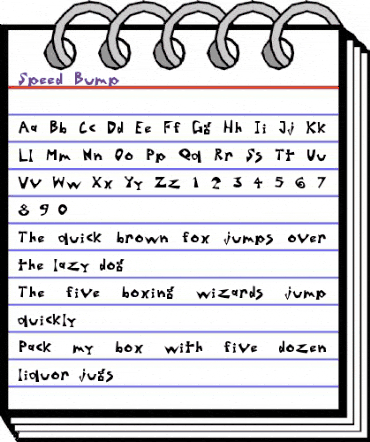 Speed Bump
Aa Bb Cc Dd Ee Ff Gg Hh Ii Jj Kk
Ll Mm Nn Oo Pp Qq Rr Ss Tt Uu
Vv Ww Xx Yy Zz 1 2 3 4 5 6 7
8 9 0
The quick brown fox jumps over
the lazy dog
The five boxing wizards jump
quickly
Pack my box with five dozen
liquor jugs